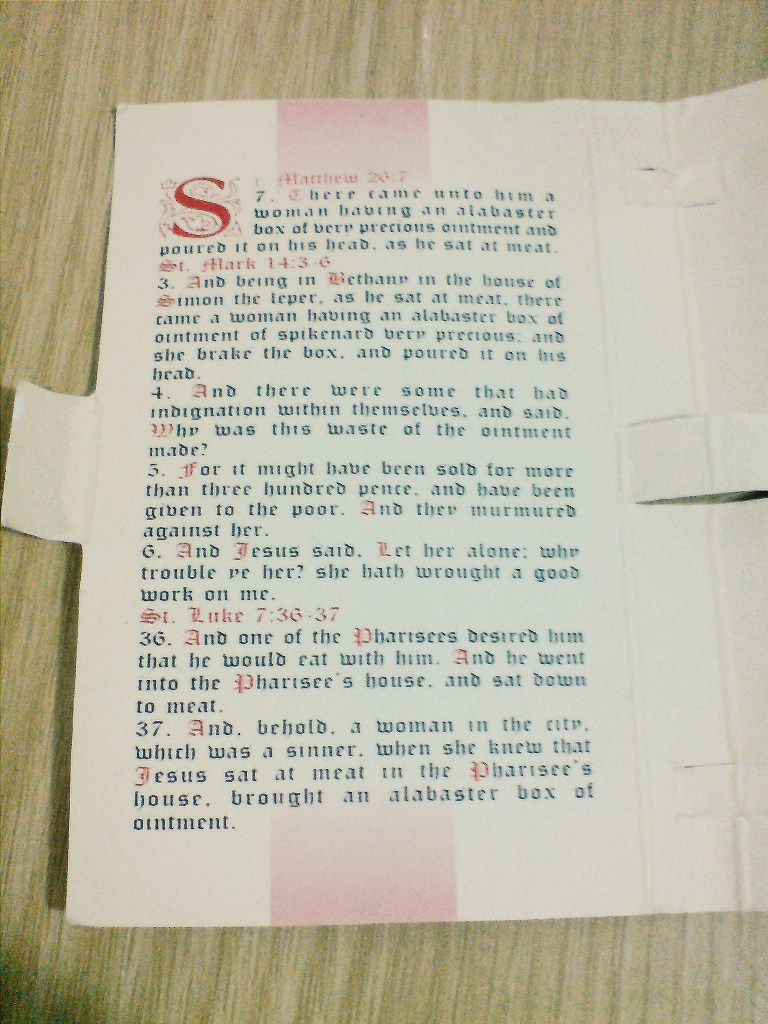 St. Matthew 26:7
7. There came unto him a
woman having an alabaster
box of very precious ointment and
poured it on his head, as he sat at meat.
St. Mark 14:3-6
3. And being in Bethany in the house of
Simon the leper, as he sat at meat, there
came a woman having an alabaster box of
ointment of spikenard very precious; and
she brake the box, and poured it on his
head.
4. And there were some that had
indignation within themselves, and said,
Why was this waste of the ointment
made?
5. For it might have been sold for more
than three hundred pence, and have been
given to the poor. And they murmured
against her.
6. And Jesus said, Let her alone; why
trouble ye her? she hath wrought a good
work on me.
St. Luke 7:36-37
36. And one of the Pharisees desired him
that he would eat with him. And he went
into the Pharisee's house, and sat down
to meat.
37. And, behold, a woman in the city,
which was a sinner, when she knew that
Jesus sat at meat in the Pharisee's
house, brought an alabaster box of
ointment.